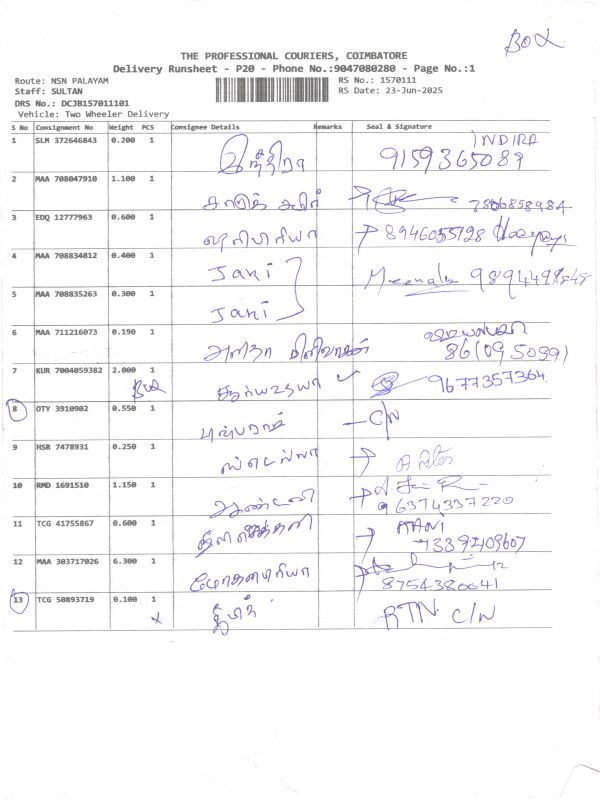 BOX
THE PROFESSIONAL COURIERS, COIMBATORE
Delivery Runsheet - P20 - Phone No.:9047080280 - Page No.:1
Route: NSN PALAYAM
Staff: SULTAN
DRS No.: DCJB157011101
Vehicle: Two Wheeler Delivery
RS No.: 1570111
RS Date: 23-Jun-2025
S No Consignment No Weight PCS Consignee Details Remarks Seal & Signature
1 SLM 372646843 0.200 1 இந்திரா INDIRA 9159365089
2 MAA 708047910 1.100 1
3 EDQ 12777963 0.600 1 ஷரிபிரியா 8946055128
4 MAA 708834812 0.400 1 Jani
5 MAA 708835263 0.300 1 Jani
6 MAA 711216073 0.190 1
7 KUR 7004059382 2.000 1 BOX சூர்யஉதயா 9677357364
8 OTY 3910902 0.550 1 C/N
9 HSR 7478931 0.250 1
10 RMD 1691510 1.150 1 ஆண்டனி 6374337220
11 TCG 41755867 0.600 1
12 MAA 303717026 6.300 1 மோகனபிரியா 8754380041
13 TCG 50893719 0.100 1 x RTN C/N